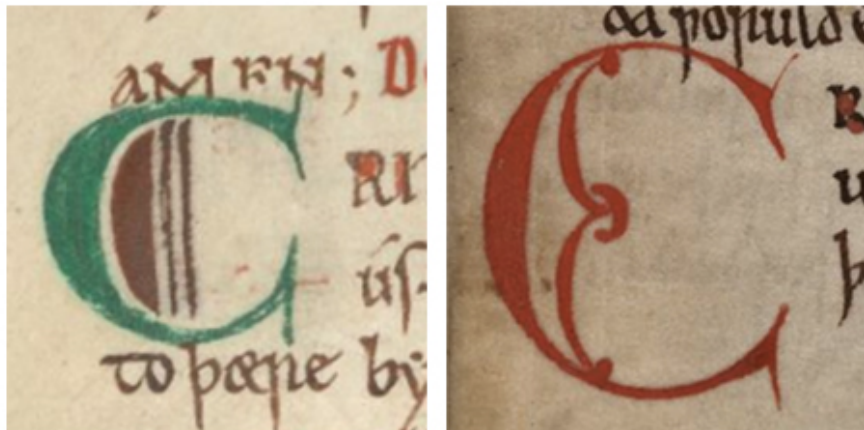 AMEN; D
C
RI
us.
to þære by
da ƿoruld e
C
R
u